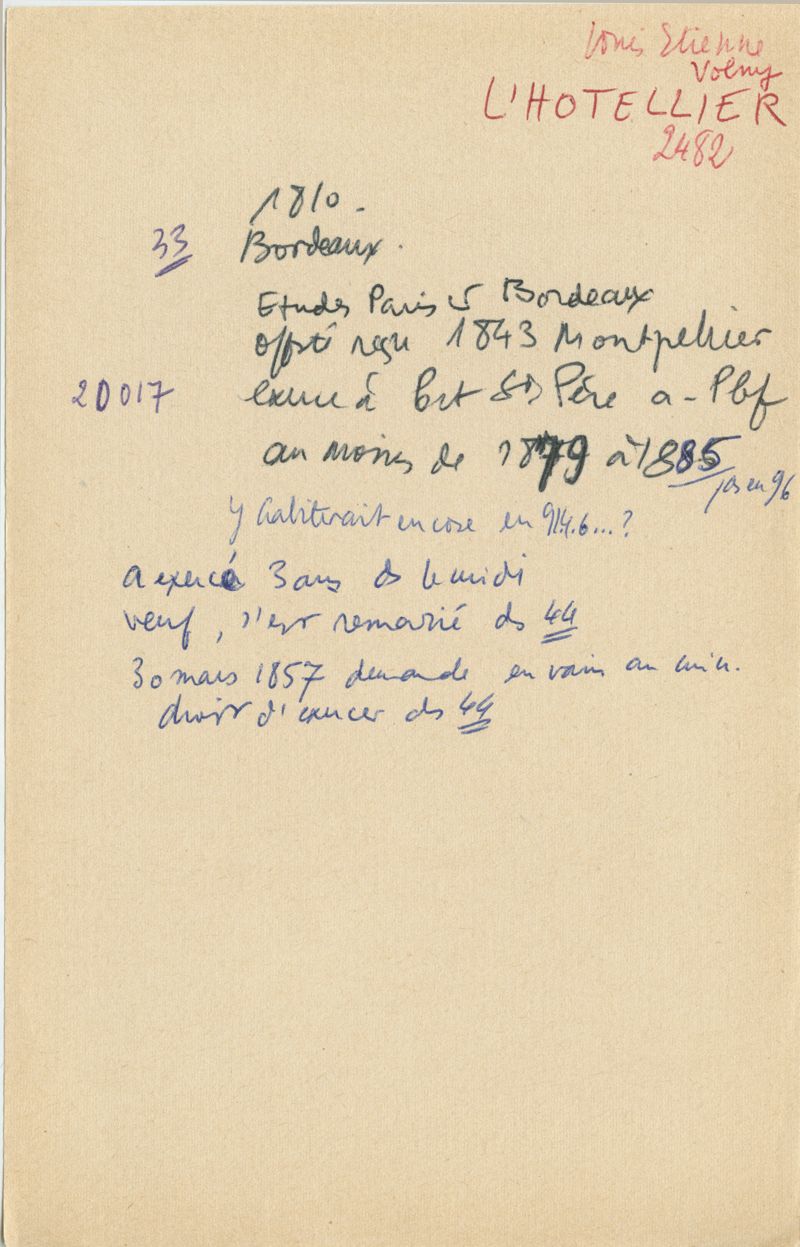 Louis Etienne
Volny
L'HOTELLIER
2482
1810.
33 Bordeaux.
Etudes Paris & Bordeaux
offté reçu 1843 Montpellier
20017 exerce à St Père
au moins de 1879 à 1885
pas en 96
Y habiterait encore en
a exercé 3 ans ds le midi
veuf, s'est remarié ds 44
30 mars 1857 demande en vain au min.
droit d'exercer ds 44